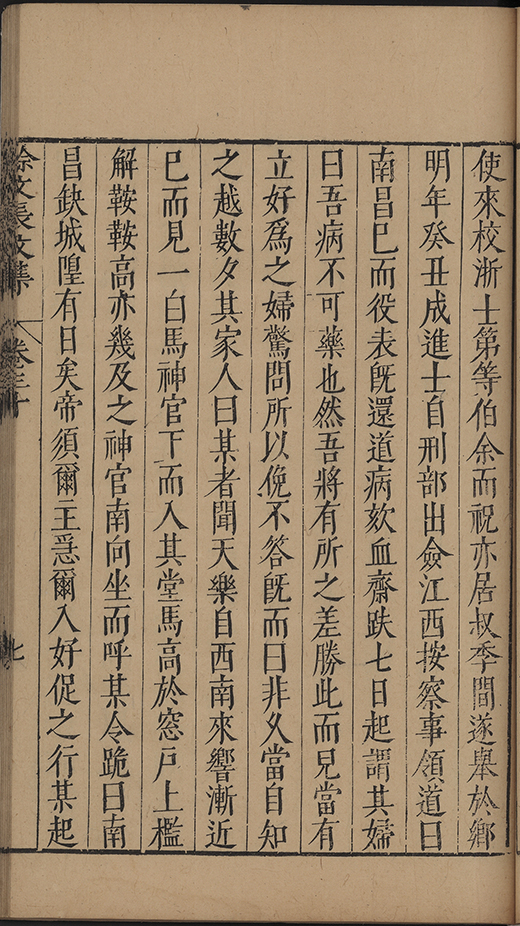 使來校浙士第等伯余而祝亦居叔季間遂舉於鄉
明年癸丑成進士自刑部出僉江西按察事領道曰
南昌已而役表旣還道病欬血齋跌七日起謂其婦
曰吾病不可藥也然吾將有所之差勝此而兒當有
立好爲之婦驚問所以俛不答旣而曰非久當自知
之越數夕其家人曰某者聞天樂自西南來響漸近
已而見一白馬神官下而入其堂馬高於窓戶上檻
解鞍鞍高亦幾及之神官南向坐而呼某令跪曰南
昌缺城隍有日矣帝須爾主爲爾入好促之行某起
徐文長文集 卷三十 七